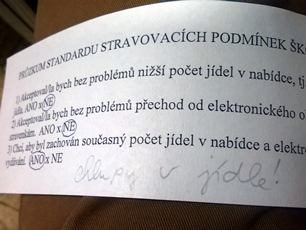 PRŮZKUM STANDARDU STRAVOVACÍCH PODMÍNEK ŠK
1) Akceptoval/la bych bez problémů nižší počet jídel v nabídce, tj
jídla. ANO x NE
2) Akceptoval/la bych bez problémů přechod od elektronického o
stravenkám. ANO x NE
3) Chci, aby byl zachován současný počet jídel v nabídce a elektr
vydávání. ANO x NE
chlupy v jídle!